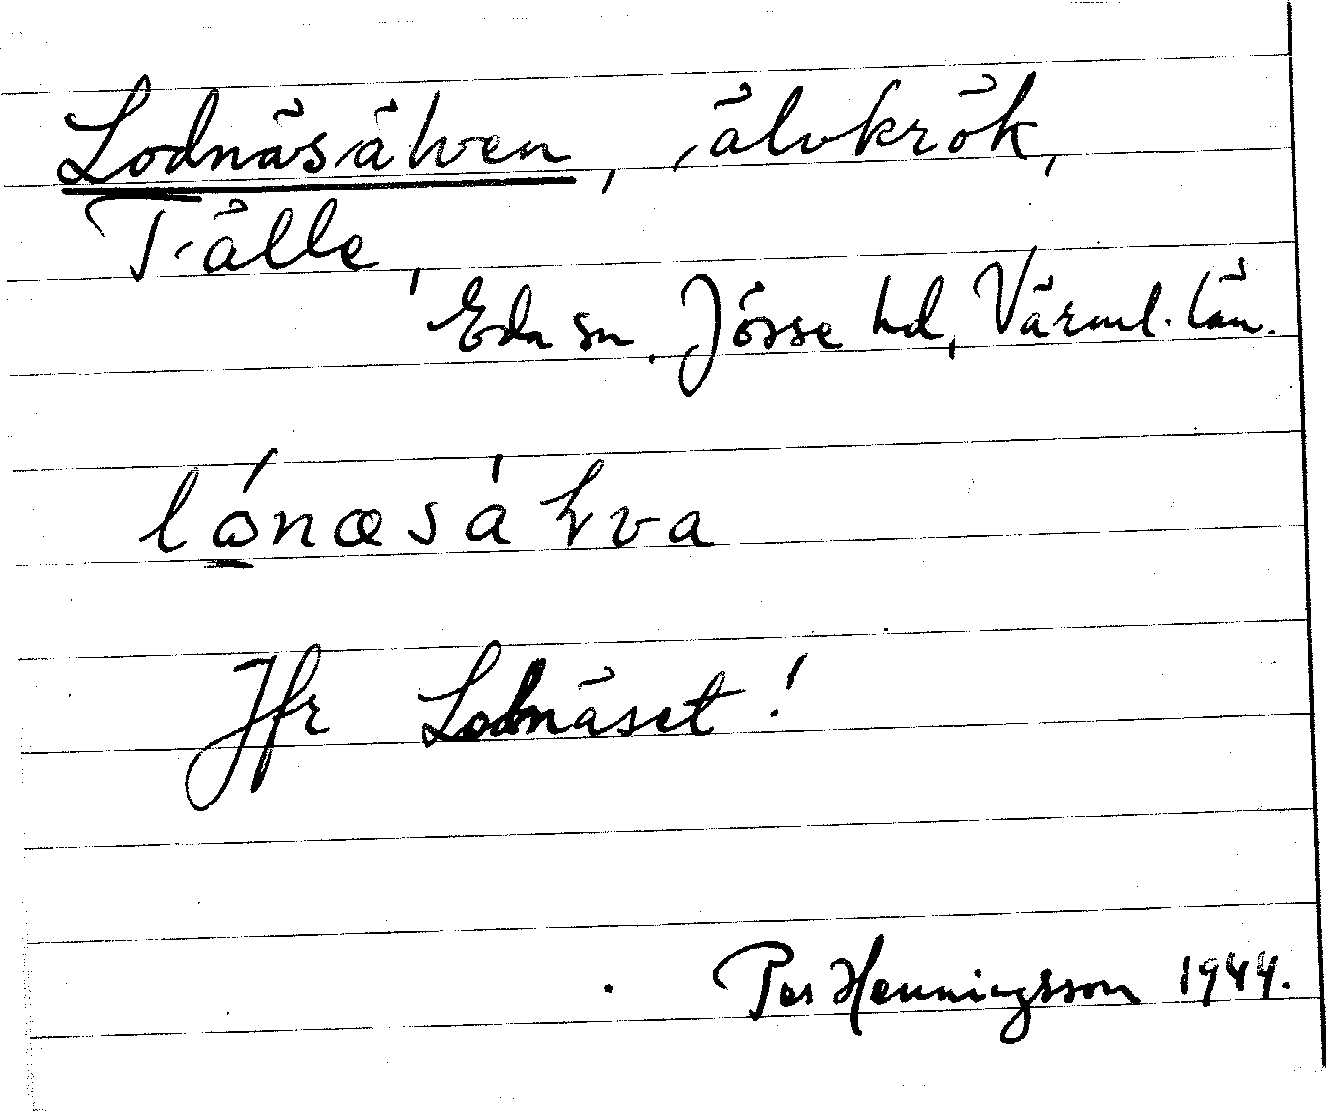 Lodnäsälven, älvkrök,
Tälle,
Eda sn. Jösse hd, Värml. län.
Jfr Lodnäset!
Per Henningsson 1944.